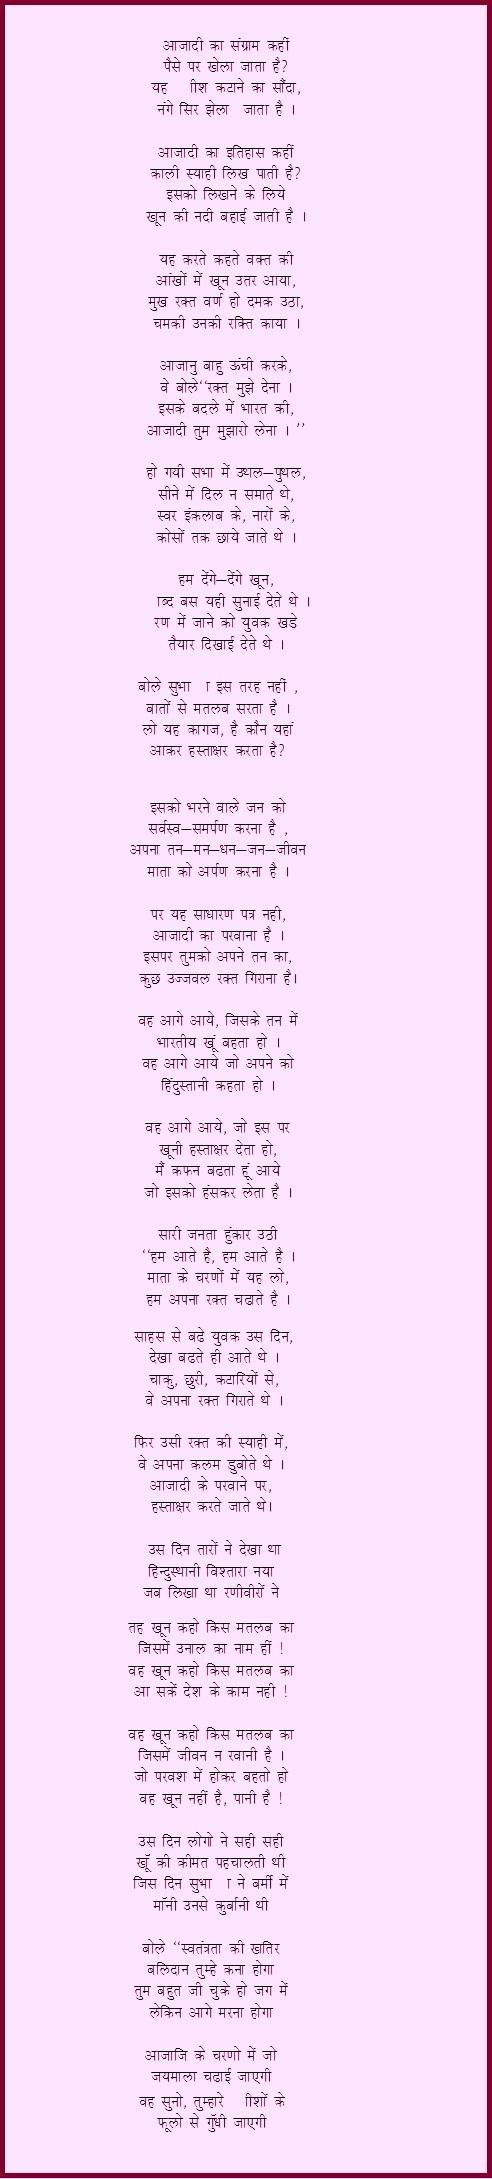 आजादी का संग्राम कहीं
पैसे पर खेला जाता है?
यह ाीश कटाने का सौंदा,
नंगे सिर झेला जाता है ।
आजादी का इतिहास कहीं
काली स्याही लिख पाती है?
इसको लिखने के लिये
खून की नदी बहाई जाती है ।
यह करते कहते वक्त की
आंखों में खून उतर आया,
मुख रक्त वर्ण हो दमक उठा,
चमकी उनकी रक्ति काया ।
आजानु बाहु ऊंची करके,
वे बोले‘‘रक्त मुझे देना ।
इसके बदले में भारत की,
आजादी तुम मुझारो लेना । ’’
हो गयी सभा में उथल—पुथल,
सीने में दिल न समाते थे,
स्वर इंकलाब के, नारों के,
कोसों तक छाये जाते थे ।
हम देंगे—देंगे खून,
ाब्द बस यही सुनाई देते थे ।
रण में जाने को युवक खडे
तैयार दिखाई देते थे ।
बोले सुभा ा इस तरह नहीं ,
बातों से मतलब सरता है ।
लो यह कागज, है कौन यहां
आकर हस्ताक्षर करता है?
इसको भरने वाले जन को
सर्वस्व—समर्पण करना है ,
अपना तन—मन—धन—जन—जीवन
माता को अर्पण करना है ।
पर यह साधारण पत्र नही,
आजादी का परवाना है ।
इसपर तुमको अपने तन का,
कुछ उज्जवल रक्त गिराना है।
वह आगे आये, जिसके तन में
भारतीय खूं बहता हो ।
वह आगे आये जो अपने को
हिंदुस्तानी कहता हो ।
वह आगे आये, जो इस पर
खूनी हस्ताक्षर देता हो,
मैं कफन बढता हूं आये
जो इसको हंसकर लेता है ।
सारी जनता हुंकार उठी
‘‘हम आते है, हम आते है ।
माता के चरणों में यह लो,
हम अपना रक्त चढाते है ।
साहस से बढे युवक उस दिन,
देखा बढते ही आते थे ।
चाकु, छुरी, कटारियों से,
वे अपना रक्त गिराते थे ।
फिर उसी रक्त की स्याही में,
वे अपना कलम डुबोते थे ।
आजादी के परवाने पर,
हस्ताक्षर करते जाते थे।
उस दिन तारों ने देखा था
हिन्दुस्थानी विश्तारा नया
जब लिखा था रणीवीरों ने
तह खून कहो किस मतलब का
जिसमें उनाल का नाम हीं !
वह खून कहो किस मतलब का
आ सकें देश के काम नही !
वह खून कहो किस मतलब का
जिसमें जीवन न रवानी है ।
जो परवश में होकर बहतो हो
वह खून नहीं है, पानी है !
उस दिन लोगो ने सही सही
खूॅ की कीमत पहचालती थी
जिस दिन सुभा ा ने बर्मी में
मॉनी उनसे कुर्बानी थी
बोले ‘‘स्वतंत्रता की खतिर
बलिदान तुम्हे कना होगा
तुम बहुत जी चुके हो जग में
लेकिन आगे मरना होगा
आजाजि के चरणो में जो
जयमाला चढाई जाएगी
वह सुनो, तुम्हारे ाीशों के
फूलो से गुॅथी जाएगी